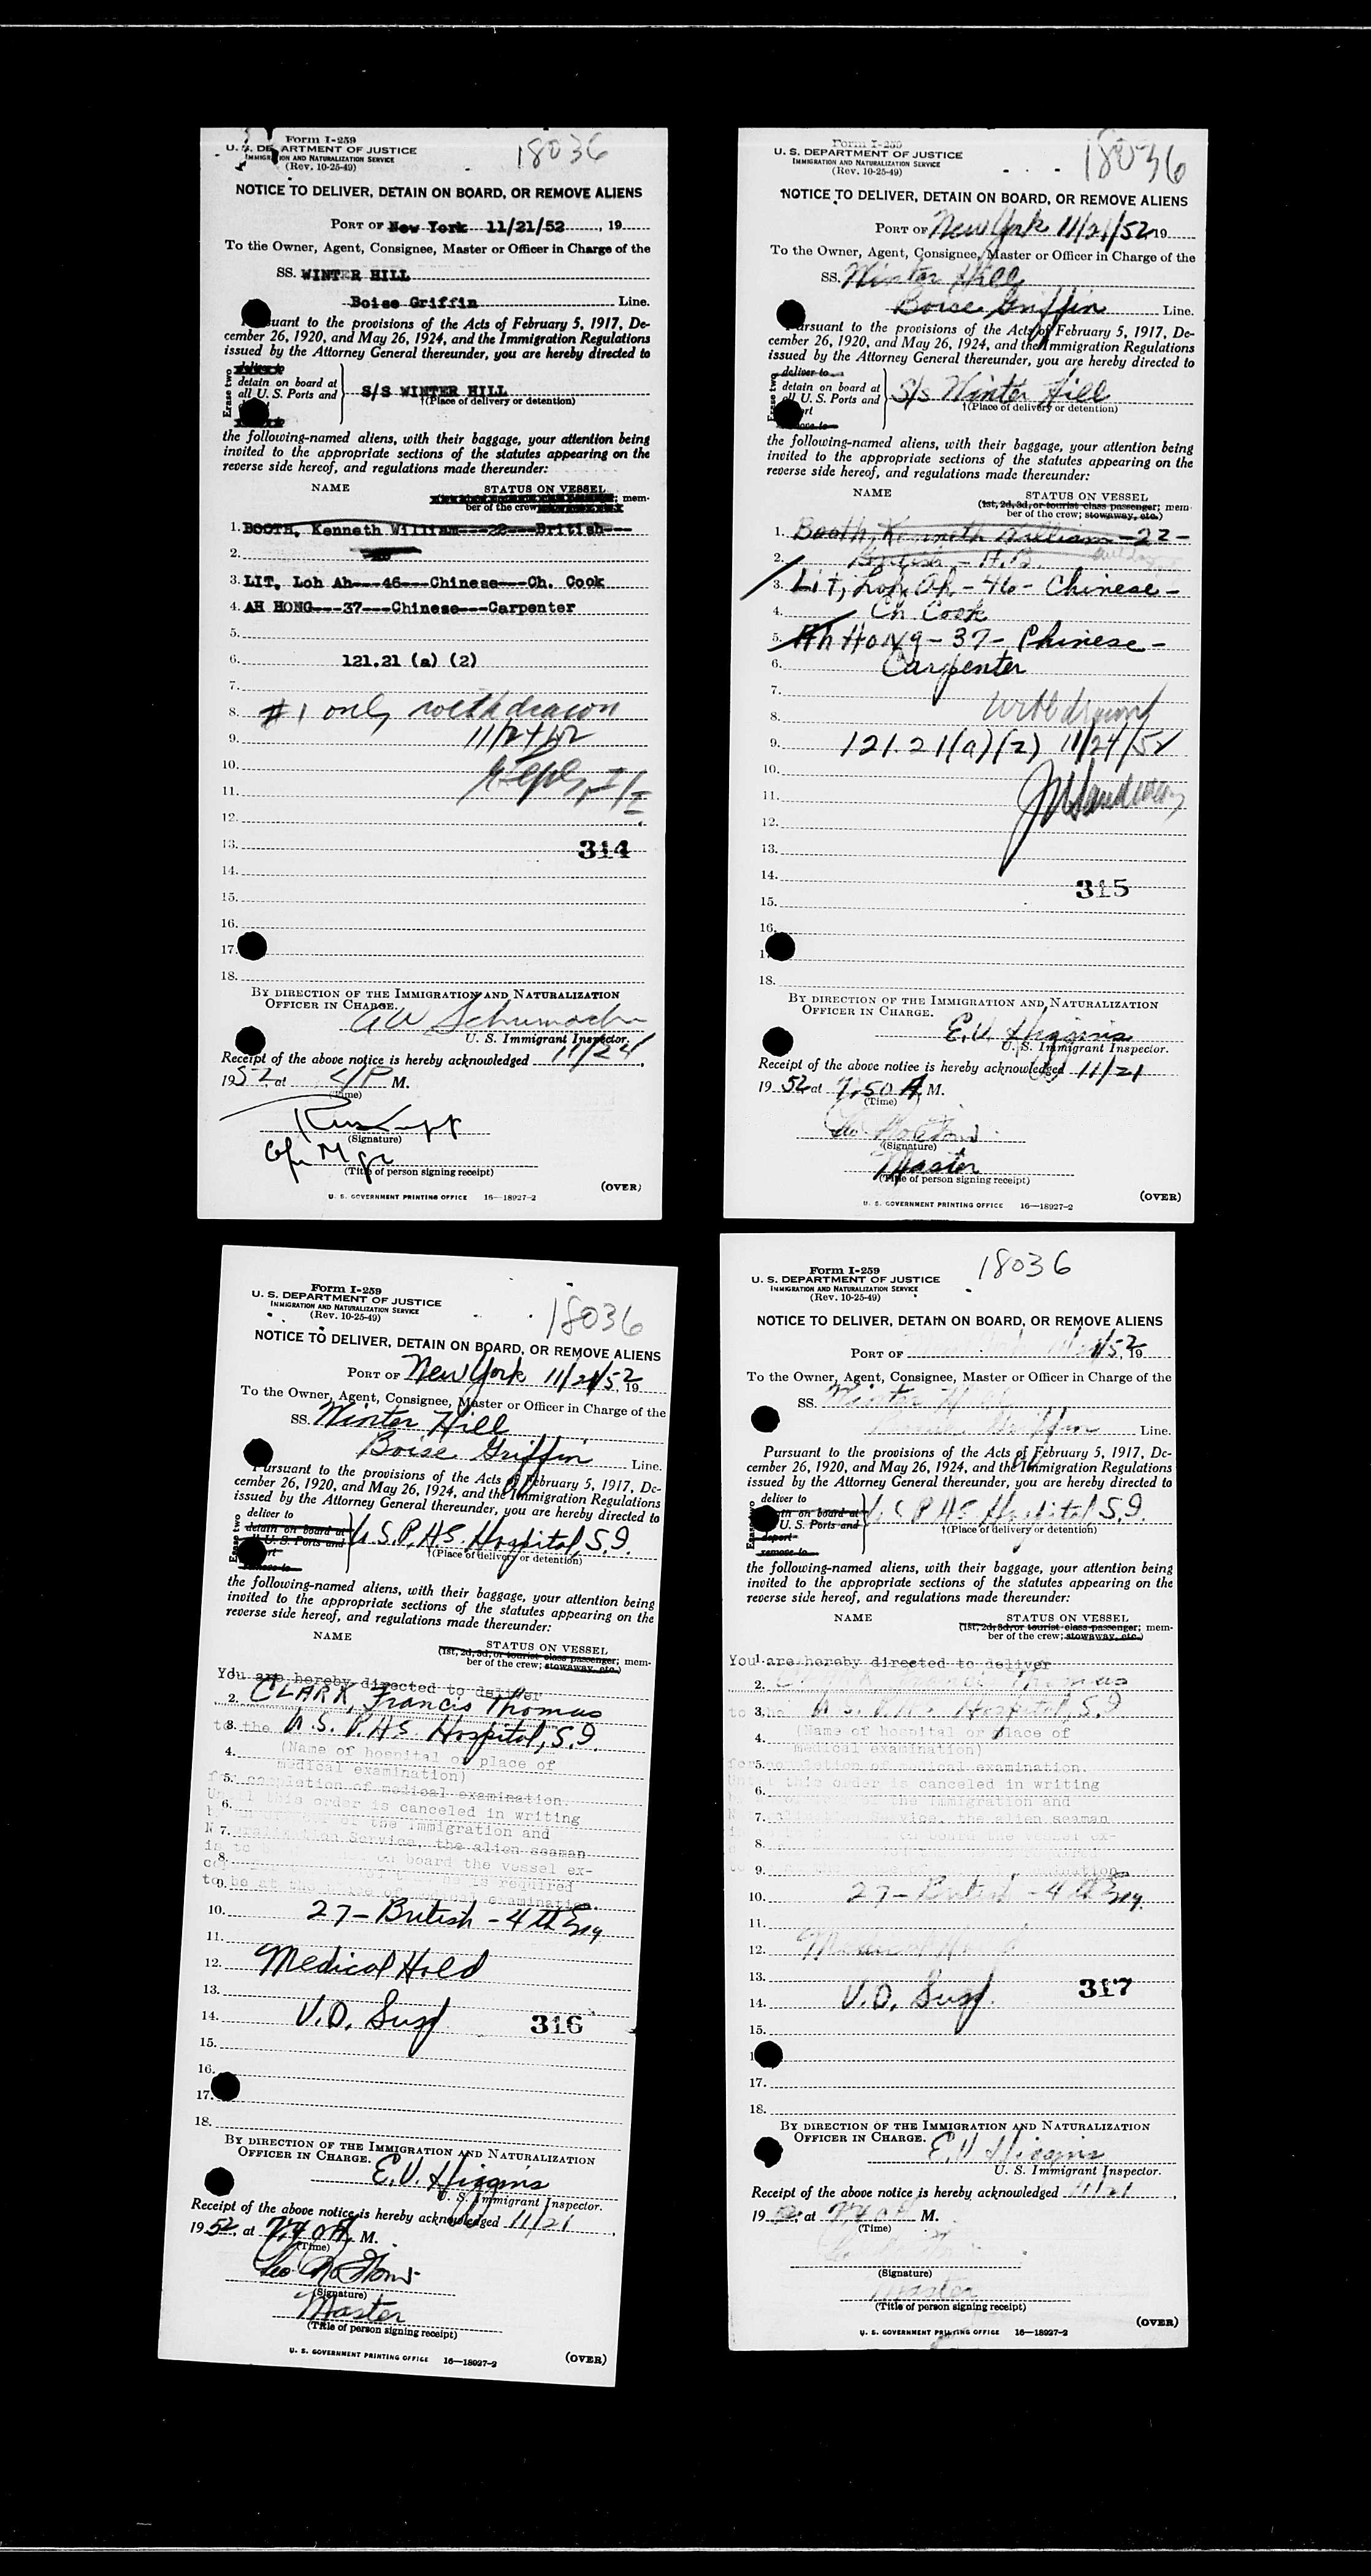 Form I-259
U. S. DEPARTMENT OF JUSTICE
IMMIGRATION AND NATURALIZATION SERVICE
(Rev. 10-25-49)
18036
NOTICE TO DELIVER, DETAIN ON BOARD, OR REMOVE ALIENS
PORT OF New York 11/21/52, 19
To the Owner, Agent, Consignee, Master or Officer in Charge of the
SS. WINTER HILL
Boise Griffin Line.
Pursuant to the provisions of the Acts of February 5, 1917, De-
cember 26, 1920, and May 26, 1924, and the Immigration Regulations
issued by the Attorney General thereunder, you are hereby directed to
Erase two
detain on board at
all U. S. Ports and
S/S WINTER HILL
†(Place of delivery or detention)
the following-named aliens, with their baggage, your attention being
invited to the appropriate sections of the statutes appearing on the
reverse side hereof, and regulations made thereunder:
NAME
STATUS ON VESSEL
; mem-
ber of the crew
1. BOOTH, Kenneth William---22---British---
2.
3. LIT, Loh Ah---46---Chinese---Ch. Cook
4. AH HONG---37---Chinese---Carpenter
5.
6. 121.21 (a) (2)
7.
8. #1 only withdrawn
9. 11/24/52
10.
11.
12.
13. 314
14.
15.
16.
17.
18.
BY DIRECTION OF THE IMMIGRATION AND NATURALIZATION
OFFICER IN CHARGE.
A W Schumacher
U. S. Immigrant Inspector.
Receipt of the above notice is hereby acknowledged 11/24,
1952 at P M.
(Time)
(Signature)
(Title of person signing receipt)
(OVER)
U. S. GOVERNMENT PRINTING OFFICE 16—18927-2
Form I-259
U. S. DEPARTMENT OF JUSTICE
IMMIGRATION AND NATURALIZATION SERVICE
(Rev. 10-25-49)
18036
NOTICE TO DELIVER, DETAIN ON BOARD, OR REMOVE ALIENS
PORT OF New York 11/21/52 19
To the Owner, Agent, Consignee, Master or Officer in Charge of the
SS. Winter Hill
Boise Griffin Line.
Pursuant to the provisions of the Acts of February 5, 1917, De-
cember 26, 1920, and May 26, 1924, and the Immigration Regulations
issued by the Attorney General thereunder, you are hereby directed to
deliver to
detain on board at
all U. S. Ports and
S/s Winter Hill
†(Place of delivery or detention)
the following-named aliens, with their baggage, your attention being
invited to the appropriate sections of the statutes appearing on the
reverse side hereof, and regulations made thereunder:
NAME
STATUS ON VESSEL
(1st, 2d, 3d, or tourist class passenger; mem-
ber of the crew; stowaway, etc.)
1. Booth, Kenneth William - 22 -
2. British - H.B.
3. Lit, Loh Ah - 46 - Chinese -
4. Ch Cook
5. Ah Hong - 37 - Chinese -
6. Carpenter
7.
8. withdrawn
9. 121.21(a)(2) 11/24/52
10.
11.
12.
13.
14.
315
15.
16.
17.
18.
BY DIRECTION OF THE IMMIGRATION AND NATURALIZATION
OFFICER IN CHARGE.
E.V. Higgins
U. S. Immigrant Inspector.
Receipt of the above notice is hereby acknowledged 11/21
1952 at 7.50 A M.
(Time)
(Signature)
Master
(Title of person signing receipt)
(OVER)
U. S. GOVERNMENT PRINTING OFFICE 16—18927-2
Form I-259
U. S. DEPARTMENT OF JUSTICE
IMMIGRATION AND NATURALIZATION SERVICE
(Rev. 10-25-49)
18036
NOTICE TO DELIVER, DETAIN ON BOARD, OR REMOVE ALIENS
PORT OF New York 11/21/52, 19
To the Owner, Agent, Consignee, Master or Officer in Charge of the
SS. Winter Hill
Boise Griffin Line.
Pursuant to the provisions of the Acts of February 5, 1917, De-
cember 26, 1920, and May 26, 1924, and the Immigration Regulations
issued by the Attorney General thereunder, you are hereby directed to
deliver to
detain on board at
all U. S. Ports and
U.S.P.H.S. Hospital, S.I.
†(Place of delivery or detention)
the following-named aliens, with their baggage, your attention being
invited to the appropriate sections of the statutes appearing on the
reverse side hereof, and regulations made thereunder:
NAME
STATUS ON VESSEL
(1st, 2d, 3d, or tourist class passenger; mem-
ber of the crew; stowaway, etc.)
You are hereby directed to deliver
2. CLARK, Francis Thomas
to the 3. U.S. P.H.S. Hospital, S.I.
4. (Name of hospital or place of
medical examination)
5. for completion of medical examination.
Until this order is canceled in writing
6. of the Immigration and
7. Naturalization Service, the alien seaman
is to on board the vessel ex-
8. is required
9. to be at the place of medical examination.
10. 27 - British - 4th Eng.
11.
12. Medical Hold
13.
14. V.D. Susp. 316
15.
16.
17.
18.
BY DIRECTION OF THE IMMIGRATION AND NATURALIZATION
OFFICER IN CHARGE.
E.V. Higgins
U. S. Immigrant Inspector.
Receipt of the above notice is hereby acknowledged 11/21,
1952, at M.
(Time)
(Signature)
Master
(Title of person signing receipt)
U. S. GOVERNMENT PRINTING OFFICE 16—18927-2
(OVER)
Form I-259
U. S. DEPARTMENT OF JUSTICE
IMMIGRATION AND NATURALIZATION SERVICE
(Rev. 10-25-49)
18036
NOTICE TO DELIVER, DETAIN ON BOARD, OR REMOVE ALIENS
PORT OF /52, 19
To the Owner, Agent, Consignee, Master or Officer in Charge of the
SS. Winter Hill
Griffin Line.
Pursuant to the provisions of the Acts of February 5, 1917, De-
cember 26, 1920, and May 26, 1924, and the Immigration Regulations
issued by the Attorney General thereunder, you are hereby directed to
deliver to
detain on board at
all U. S. Ports and
deport
remove to
U.S.P.H.S. Hospital S.I.
†(Place of delivery or detention)
the following-named aliens, with their baggage, your attention being
invited to the appropriate sections of the statutes appearing on the
reverse side hereof, and regulations made thereunder:
NAME
STATUS ON VESSEL
(1st, 2d, 3d, or tourist class passenger; mem-
ber of the crew; stowaway, etc.)
You 1. are hereby directed to deliver
2. Thomas
to the 3. U.S. P.H.S. Hospital, S.I.
4. (Name of hospital or place of
medical examination)
5. for completion of medical examination.
Until this order is canceled in writing
6. of the Immigration and
7. Service, the alien seaman
8. on board the vessel ex-
9. examination.
10. 27 - British - 4th Eng.
11.
12. Medical Hold
13. 317
14. V.D. Susp.
15.
17.
18.
BY DIRECTION OF THE IMMIGRATION AND NATURALIZATION
OFFICER IN CHARGE.
E.V. Higgins
U. S. Immigrant Inspector.
Receipt of the above notice is hereby acknowledged 11/21,
1952, at M.
(Time)
(Signature)
Master
(Title of person signing receipt)
(OVER)
U. S. GOVERNMENT PRINTING OFFICE 16—18927-2